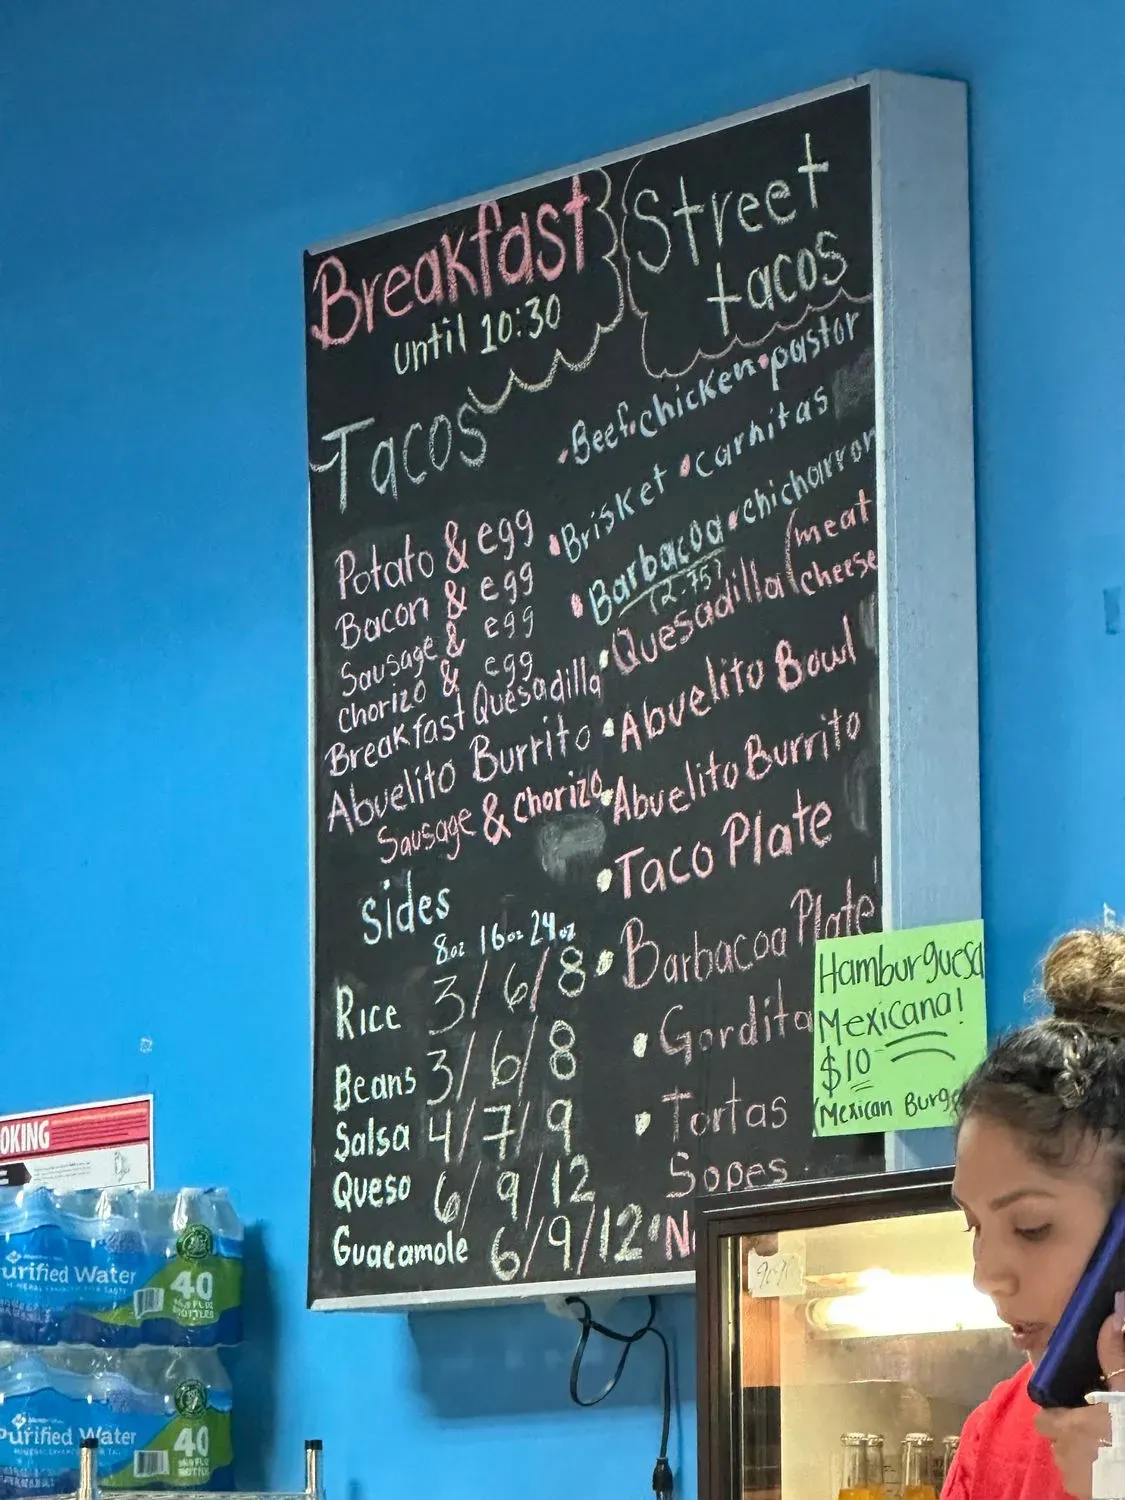 Breakfast
until 10:30
Tacos
Potato & egg
Bacon & egg
Sausage & egg
chorizo & egg
Breakfast Quesadilla
Abuelito Burrito
Sausage & chorizo
Sides
8oz 16oz 24oz
Rice 3/6/8
Beans 3/6/8
Salsa 4/7/9
Queso 6/9/12
Guacamole 6/9/12
Street
tacos
•Beef•chicken•pastor
•Brisket •carnitas
•Barbacoa•chicharron
(2.75)
•Quesadilla (meat
cheese
•Abuelito Bowl
•Abuelito Burrito
•Taco Plate
•Barbacoa Plate
•Gordita
•Tortas
Sopes
Hamburguesa
Mexicana!
$10
(Mexican Burge
OKING
urified Water
40
BOTTLES
Purified Water
40